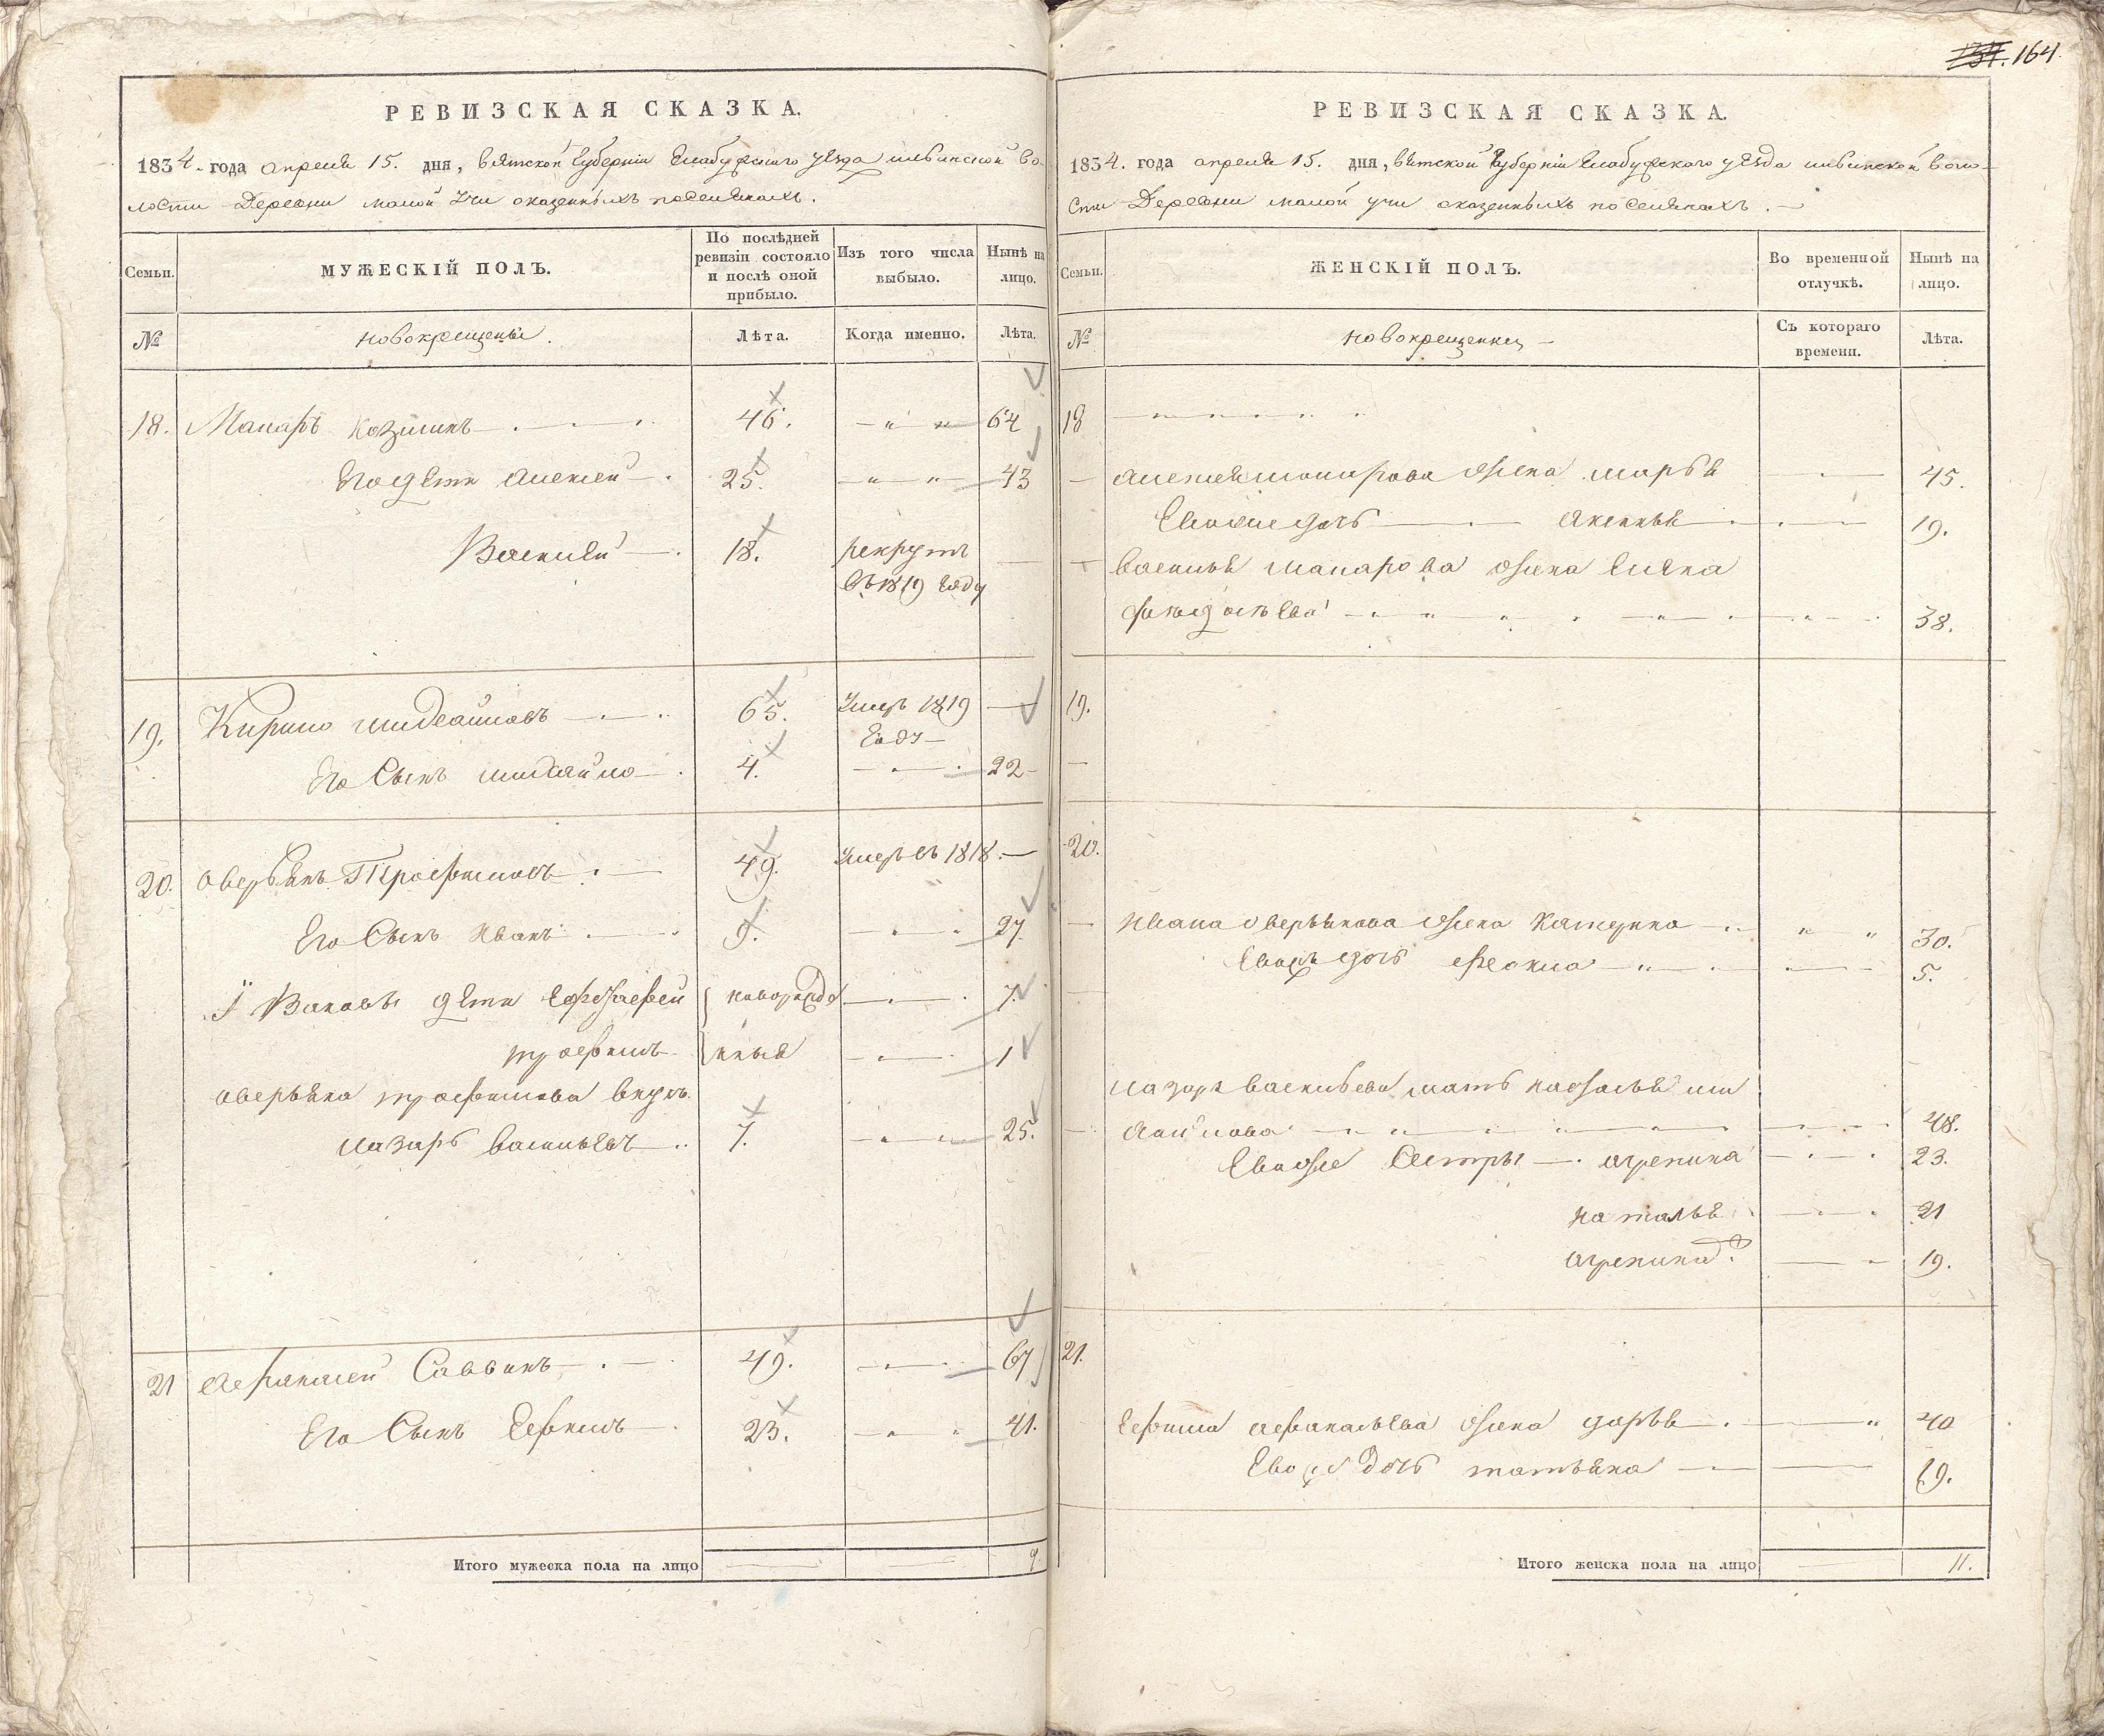 164.
РЕВИЗСКАЯ СКАЗКА.
1834. года апреля 15. дня, вятской Губернiи Елабужскаго уезда ильинской во-
лости Деревни малой Учи оказенныхъ поселянахъ.
Семьи.
МУЖЕСКІЙ ПОЛЪ.
По послѣдней ревизіи состояло и послѣ оной прибыло.
Изъ того числа выбыло.
Нынѣ на лицо.
№
новокрещены.
Лѣта.
Когда именно.
Лѣта.
18. Макаръ Козминъ 46. 64
Его дети Алексей 25. 43
Василей 18. рекрутъ
въ 1819 году
19. Кирило михайловъ 65. Умеръ 1819
году
Его Сынъ михайло 4. 22
20. Оверьянъ Трофимовъ 49. Умеръ въ 1818.
Его Сынъ Иванъ 9. 27
Ивановы дети Ерофей новорожде 7.
трофимъ нныя 1
Оверьяна трофимова внукъ
лазарь васильевъ 7. 25.
21 Афанасей Саввинъ 49. 67
Его Сынъ Ефимъ 23. 41.
Итого мужеска пола на лицо 9.
РЕВИЗСКАЯ СКАЗКА.
1834. года апреля 15. дня, вятской Губернiи Елабужскаго уезда ильинской воло-
сти Деревни малой учи оказенныхъ поселянахъ.
Семьи.
ЖЕНСКІЙ ПОЛЪ.
Во временной отлучкѣ.
Нынѣ на лицо.
№
новокрещенки
Съ котораго времени.
Лѣта.
18
Алексея макарова жена марья 45.
Ево же дочь аксинья 19.
василья макарова жена елена
38.
19.
20.
Ивана оверьянова жена катерина 30.
Евожъ дочь Фекла 5.
лазаря васильева мать наталья ми
хайлова 48.
Евоже Сестры агрепина 23.
наталья 21
агрепина 2я 19.
21.
Ефима афанасьева жена дарья 40
Евоже дочь татьяна 19.
Итого женска пола на лицо 11.